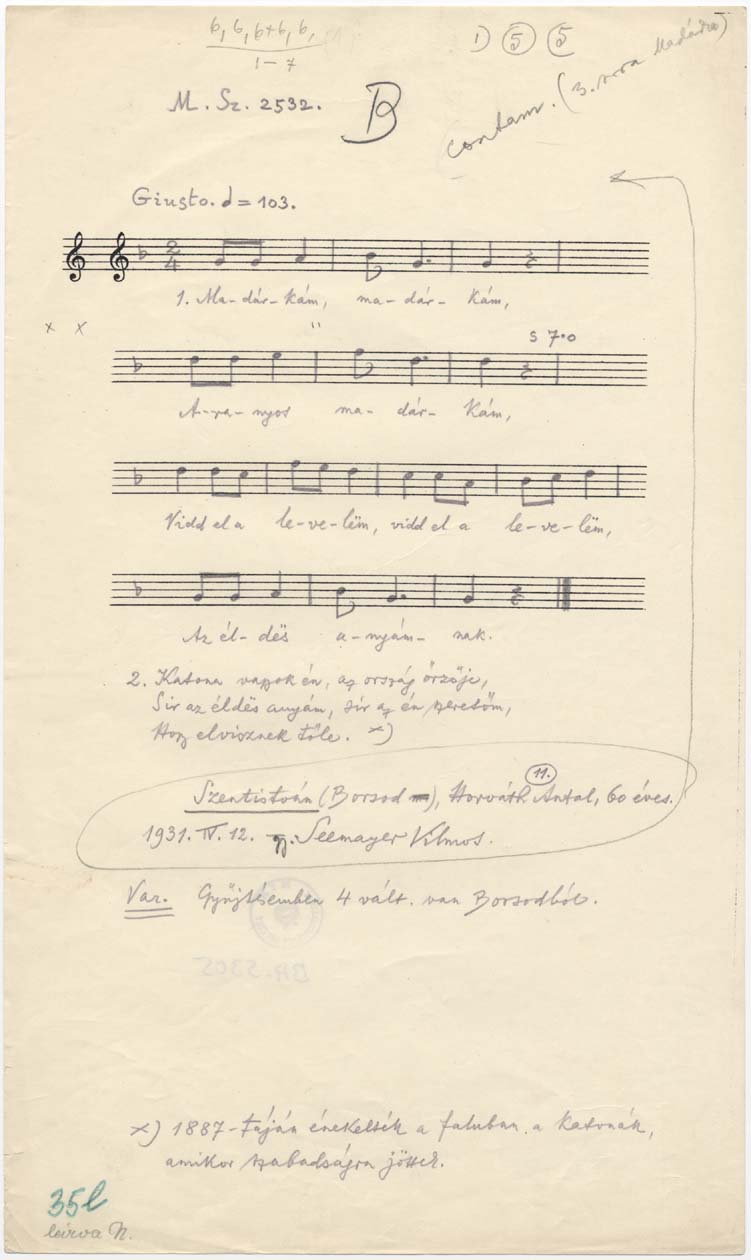 6, 6, 6+6, 6,
1-7
1) 5 5
M. Sz. 2532.
B
contam. (3. sora Madárka)
Giusto. d = 103.
2
4
1. Ma-dár-kám, ma-dár-kám,
x x
"
s 7.0
A-ra-nyos ma-dár-kám,
Vidd el a le-ve-lëm, vidd el a le-ve-lëm,
Az él-dës a-nyám-nak.
2. Katona vagyok én, az ország őrzője,
Sir az éldës anyám, sir az én szeretőm,
Hogy elvisznek tőle. x)
11.
Szentistván (Borsod), Horváth Antal, 60 éves.
1931. IV. 12. gy. Seemayer Vilmos.
Var. Gyűjtésemben 4 vált. van Borsodból.
BR-5305
x) 1887-táján énekelték a faluban a katonák,
amikor szabadságra jöttek.
35l
leirva N.